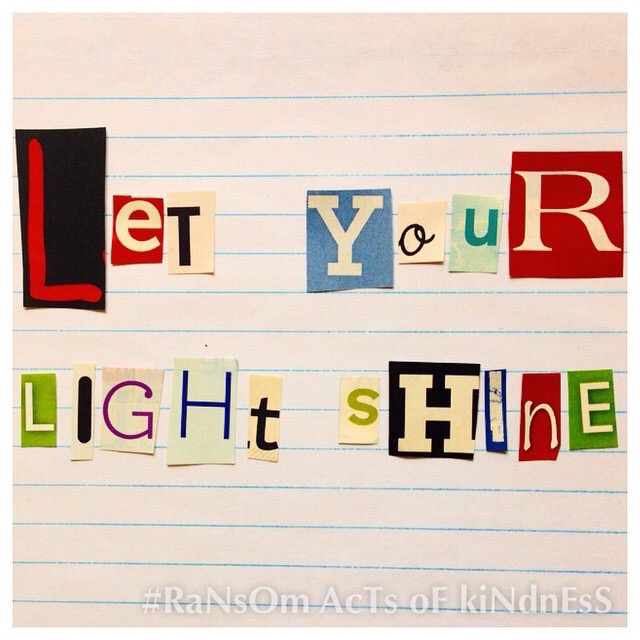 LeT YouR
LIGHt sHInE
#RaNsOm AcTs oF kiNdnEsS